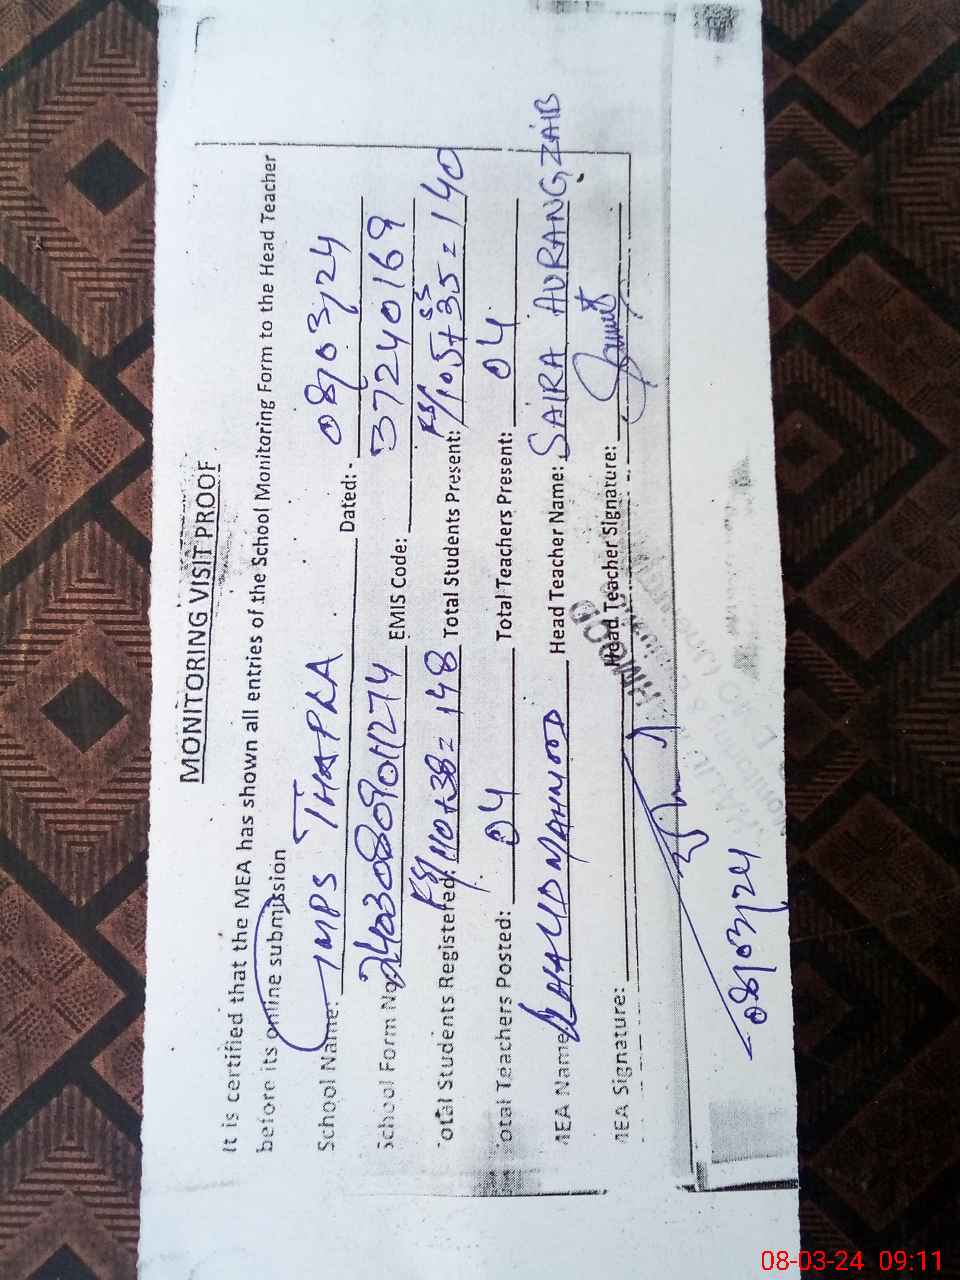 MONITORING VISIT PROOF
It is certified that the MEA has shown all entries of the School Monitoring Form to the Head Teacher
before its online submission
School Name: MPS THAPRA Dated:- 08/03/24
School Form No 2403080901274 EMIS Code: 37240169
Total Students Registered: 110+38=148 Total Students Present: 105+35=140
Total Teachers Posted: 04 Total Teachers Present: 04
MEA Name KHALID MAHMOOD Head Teacher Name: SAIRA AURANGZAIB
MEA Signature: Head Teacher Signature:
08/03/24
08-03-24 09:11